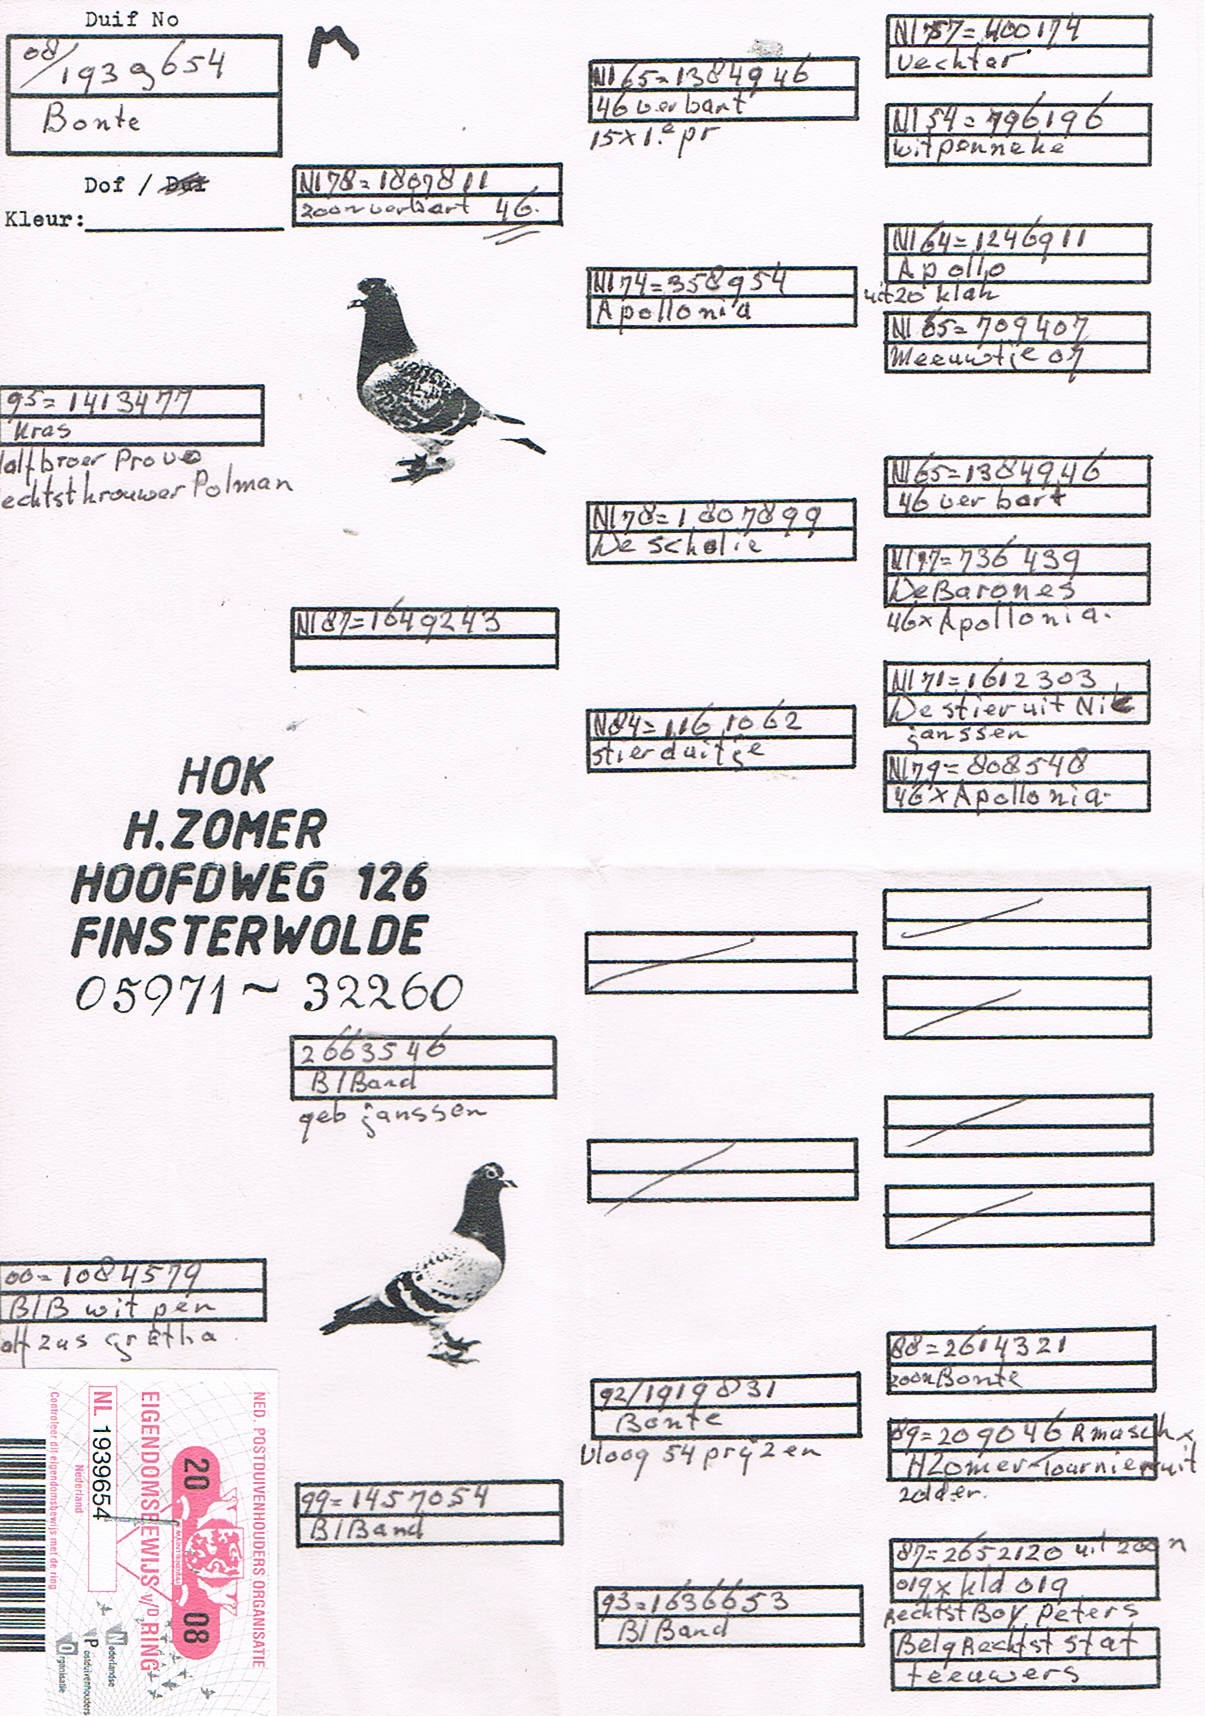 Duif No
08/1939654
Bonte
Dof / Duif
Kleur:
95=1413477
Kras
alfbroer Provo
echtst krouwer Polman
HOK
H. ZOMER
HOOFDWEG 126
FINSTERWOLDE
05971 ~ 32260
00=1084579
B/B wit pen
alf zus Gretha
NED. POSTDUIVENHOUDERS ORGANISATIE
EIGENDOMSBEWIJS V/D RING
20 08
NL 1939654
Nederland
Controleer dit eigendomsbewijs met de ring
Nederlandse
Postduivenhouders
Organisatie
Nl 78=1807811
zoon verbart 46.
Nl 87=1649243
2663546
Bl Band
geb janssen
99=1457054
Bl Band
Nl 65=1384946
46 verbart
15x1e pr
Nl 74=358954
Apollonia
Nl 78=1807899
De Scholie
N84=1161062
stierduitje
92/1919831
Bonte
Vloog 54 prijzen
93=1636653
Bl Band
Nl 57=400174
Vechtar
Nl 54=796196
witpenneke
Nl 64=1246911
Apollo
uit 20 klak
Nl 65=709407
Meeuwtje 07
Nl 65=1384946
46 verbart
Nl 77=736439
De Barones
46x Apollonia.
Nl 71=1612303
De stier uit Nic
janssen
Nl 79=808548
46x Apollonia.
88=2614321
zoon Bonte
89=209046 R musch x
H Zomer-Tournier uit
zolder.
87=2652120 uit zoon
019 x kld 019
Rechtst Boy Peters
Belg Rechtst staf
teeuwers